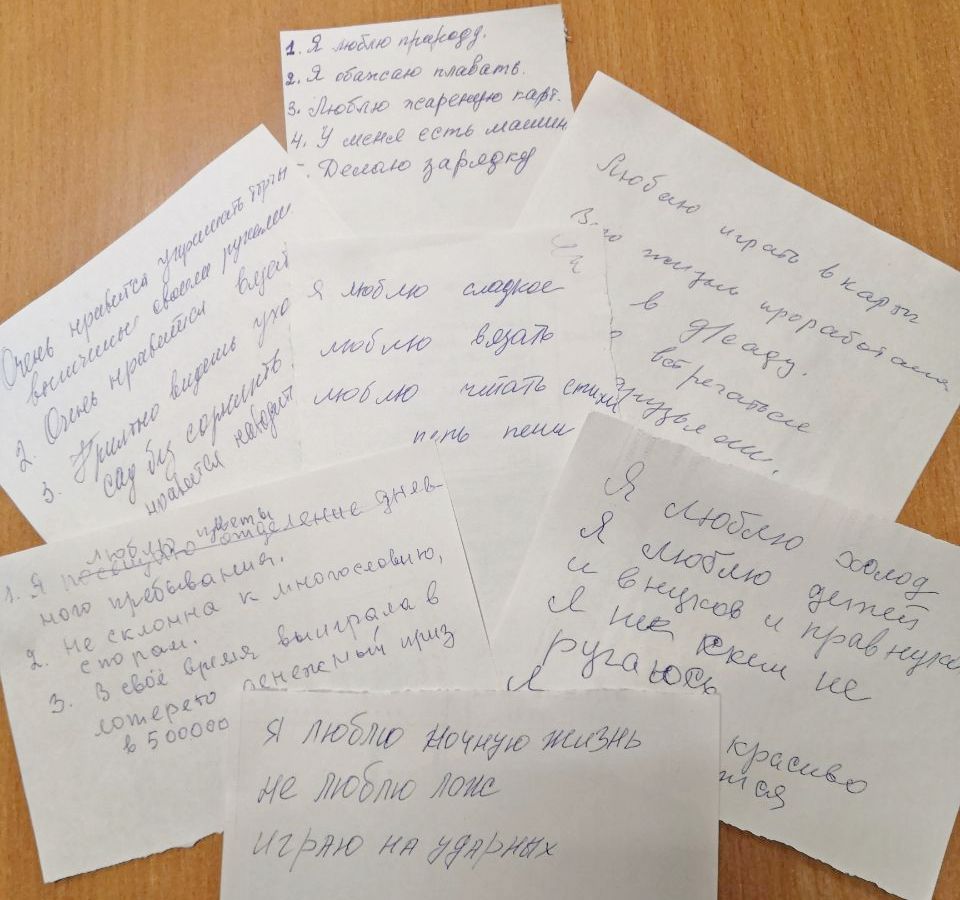 1. Я люблю природу.
2. Я обажсаю плавать.
3. Люблю жареную карт.
4. У меня есть машин
Делаю зарядку
Очень нравится украшать торты
выпеченные своими руками
2. Очень нравится вязат
3. Приятно видеть ухо
сад без сорняков.
нравится наводит
Я люблю сладкое
люблю вязать
люблю читать стихи
петь песни
Люблю играть в карты
жизни проработала
в д/саду.
встречаться
друзьями.
люблю цветы
1. Я посещаю отделение днев-
ного пребывания.
2. Не склонна к многословию,
спорам.
3. В своё время выиграла в
лотерею денежный приз
в 500000
Я люблю холод
Я люблю детей
и внуков и правнуко
Я не с кем не
ругаюсь
Я
красиво
Я люблю ночную жизнь
не люблю лож
играю на ударных